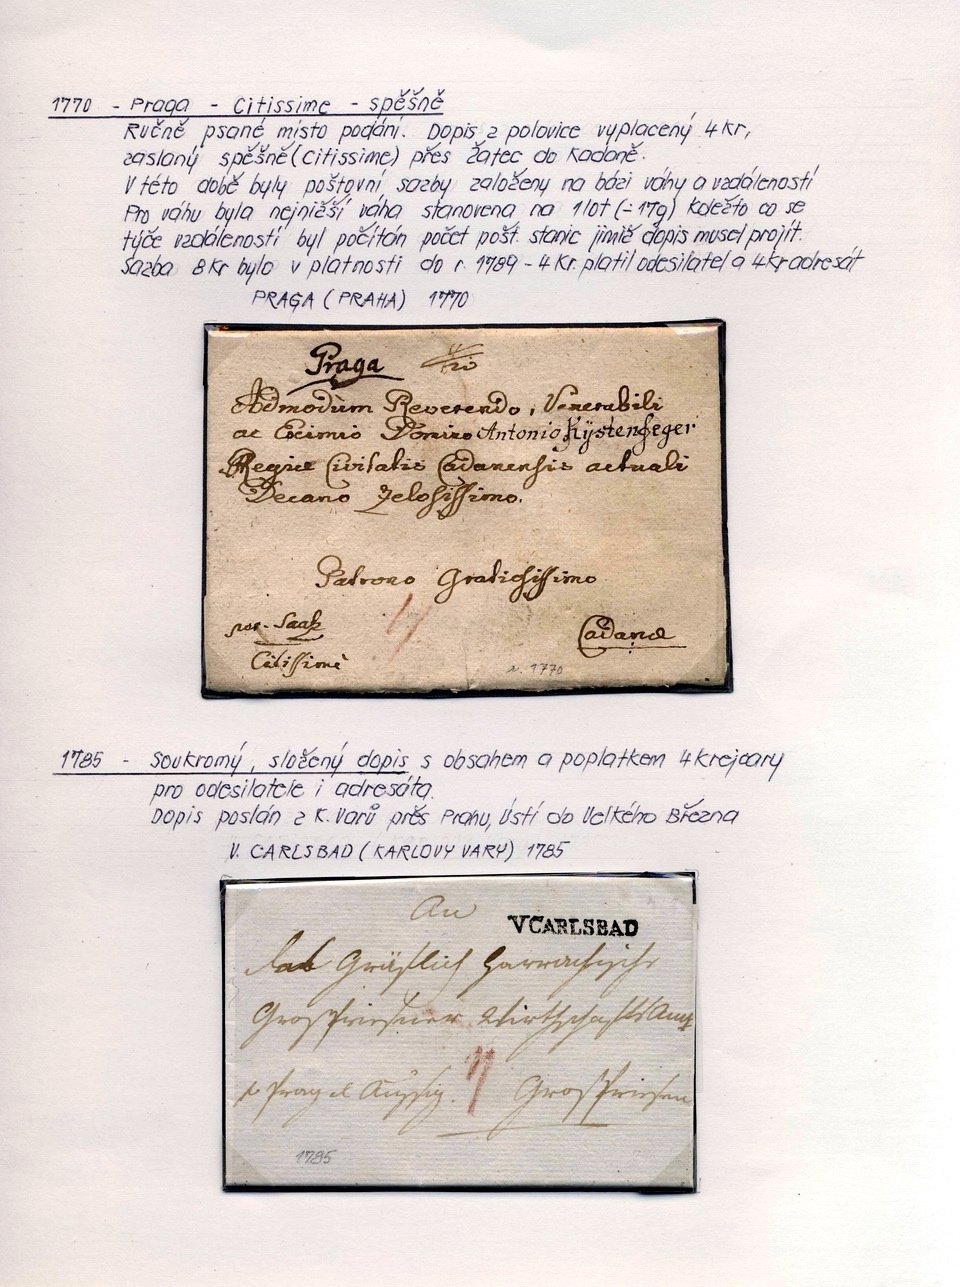 1770 - Praga - Citissime - spěšně
Ručně psané místo podání. Dopis z polovice vyplacený 4 kr,
zaslaný spěšně (citissime) přes Žatec do Kadaně.
V této době byly poštovní sazby založeny na bázi váhy a vzdáleností
Pro váhu byla nejnižší váha stanovena na 1 lot (= 17g) kdežto co se
týče vzdáleností byl počítán počet pošt. stanic jimiž dopis musel projít.
Sazba 8 Kr bylo v platnosti do r. 1789 - 4 Kr. platil odesilatel a 4 kr adresát
PRAGA (PRAHA) 1770
Praga
Admodum Reverendo, Venerabili
ac Eximio Domino Antonio Kÿstenfeger
Regiæ Civitatis Cadanensis actuali
Decano Zelosissimo.
Patrono Gratiosissimo
4
per Saatz
Cadanæ
Citissimè
1770
1785 - Soukromý, složený dopis s obsahem a poplatkem 4 krejcary
pro odesilatele i adresáta.
Dopis poslán z K. Varů přes Prahu, Ústí do Velkého Března
V. CARLSBAD (KARLOVY VARY) 1785
An
V CARLSBAD
das Gräflich Harrachische
Grosspriesner Wirthschafts Amt
p Prag et Aussig. Grosspriesen
1785